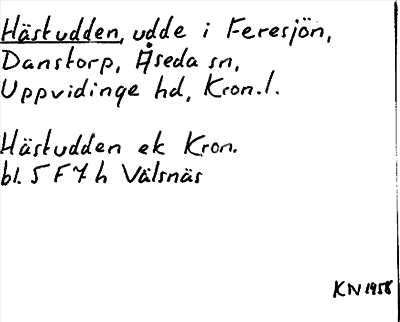 Hästudden, udde i Feresjön,
Danstorp, Åseda sn,
Uppvidinge hd, Kron. l.
Hästudden ek Kron.
bl. 5 F 7 h Välsnäs
KN 1958